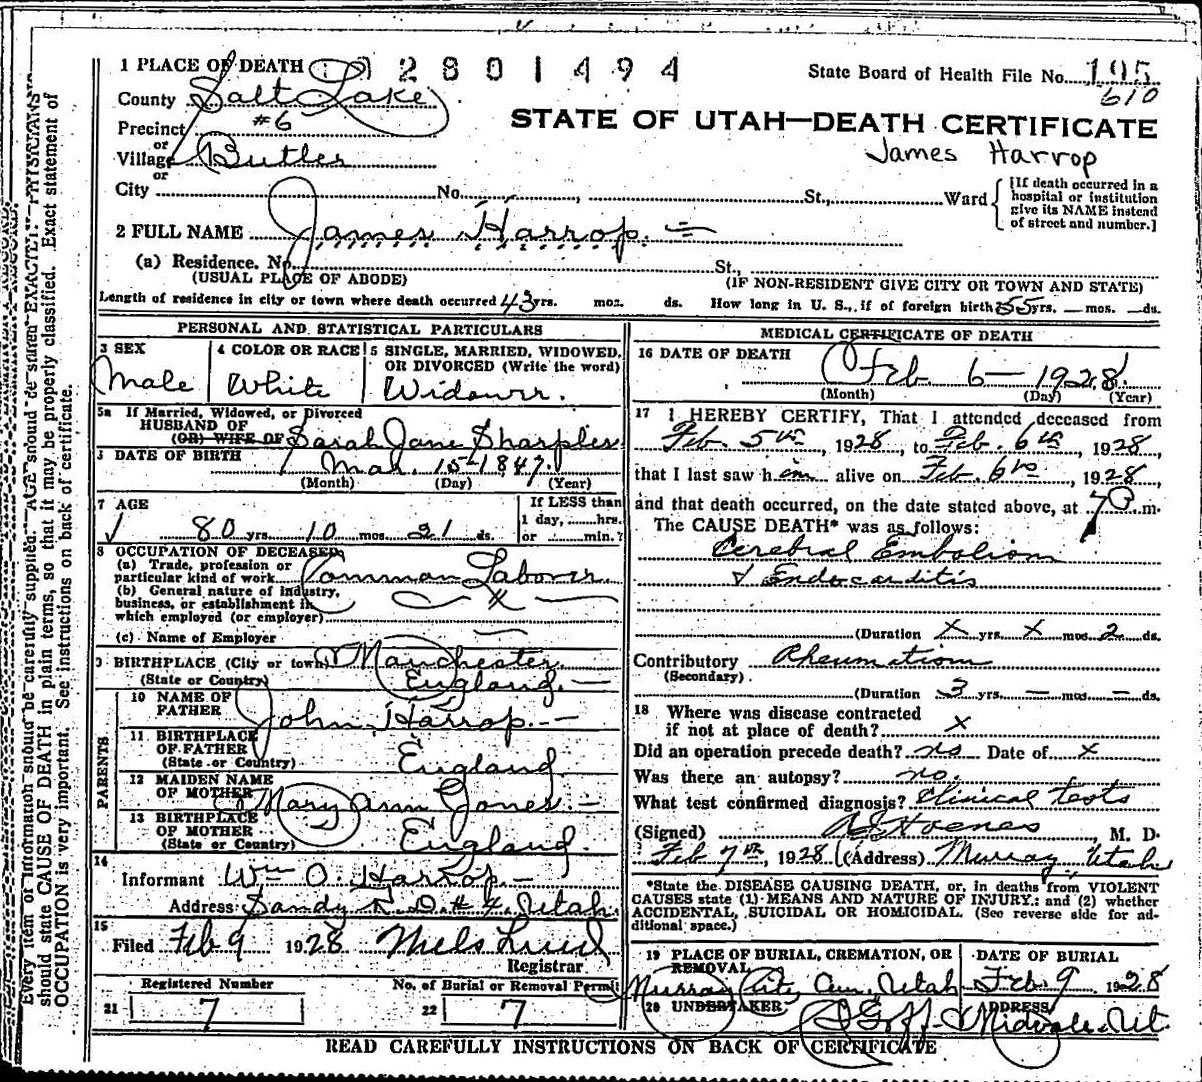 1 PLACE OF DEATH 2801494 State Board of Health File No. 195
610
County Salt Lake
Precinct #6
or
Village Butler
or
STATE OF UTAH—DEATH CERTIFICATE
James Harrop
City No. , St., Ward
[If death occurred in a
hospital or institution
give its NAME instead
of street and number.]
2 FULL NAME James Harrop
(a) Residence. No. St.,
(USUAL PLACE OF ABODE) (IF NON-RESIDENT GIVE CITY OR TOWN AND STATE)
Length of residence in city or town where death occurred 43 yrs. mos. ds. How long in U. S., if of foreign birth 55 yrs. — mos. — ds.
PERSONAL AND STATISTICAL PARTICULARS
3 SEX 4 COLOR OR RACE 5 SINGLE, MARRIED, WIDOWED,
OR DIVORCED (Write the word)
Male White Widower.
5a If Married, Widowed, or Divorced
HUSBAND OF
(OR) WIFE OF Sarah Jane Sharples
DATE OF BIRTH Mar. 15-1847.
(Month) (Day) (Year)
7 AGE If LESS than
1 day, hrs.
80 yrs. 10 mos. 21 ds. or min.?
8 OCCUPATION OF DECEASED
(a) Trade, profession or
particular kind of work Common Laborer
(b) General nature of industry,
business, or establishment in
which employed (or employer)
(c) Name of Employer
9 BIRTHPLACE (City or town) Manchester
(State or Country) England.
PARENTS
10 NAME OF
FATHER John Harrop
11 BIRTHPLACE
OF FATHER
(State or Country) England
12 MAIDEN NAME
OF MOTHER Mary Ann Jones
13 BIRTHPLACE
OF MOTHER
(State or Country) England.
14
Informant Wm O. Harrop
Address Sandy R.D. #4, Utah.
15
Filed Feb 9 1928 Niels Lind
Registrar
Registered Number No. of Burial or Removal Permit
21 7 22 7
MEDICAL CERTIFICATE OF DEATH
16 DATE OF DEATH
Feb. 6— 1928.
(Month) (Day) (Year)
17 I HEREBY CERTIFY, That I attended deceased from
Feb. 5th, 1928, to Feb. 6th, 1928
that I last saw him alive on Feb. 6th, 1928,
and that death occurred, on the date stated above, at 7 P m.
The CAUSE DEATH* was as follows:
Cerebral Embolism
& Endocarditis
(Duration x yrs. x mos. 2 ds.
Contributory Rheumatism
(Secondary)
(Duration 3 yrs. — mos. — ds.
18 Where was disease contracted
if not at place of death? x
Did an operation precede death? no Date of x
Was there an autopsy? no.
What test confirmed diagnosis? Clinical tests
(Signed) M. D.
Feb 7th, 1928 (Address) Murray Utah
*State the DISEASE CAUSING DEATH, or, in deaths from VIOLENT
CAUSES state (1) MEANS AND NATURE OF INJURY: and (2) whether
ACCIDENTAL, SUICIDAL OR HOMICIDAL. (See reverse side for ad-
ditional space.)
19 PLACE OF BURIAL, CREMATION, OR
REMOVAL
DATE OF BURIAL
Murray City Cem, Utah Feb. 9 1928
20 UNDERTAKER ADDRESS
Goff Midvale, Ut.
READ CAREFULLY INSTRUCTIONS ON BACK OF CERTIFICATE
Every item of information should be carefully supplied. AGE should be stated EXACTLY. PHYSICIANS
should state CAUSE OF DEATH in plain terms, so that it may be properly classified. Exact statement of
OCCUPATION is very important. See instructions on back of certificate.